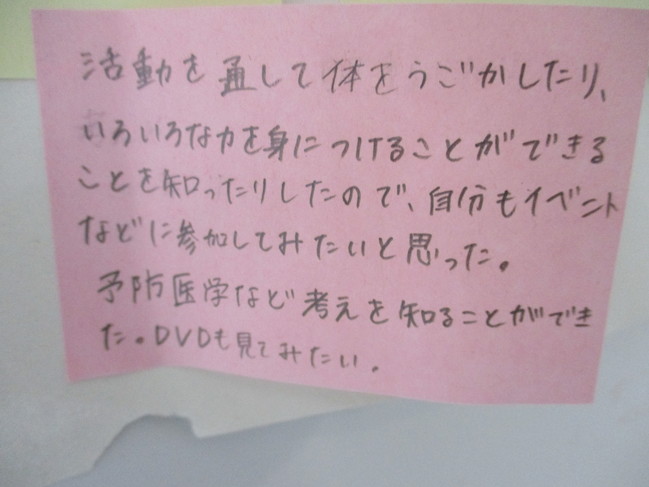 活動を通して体をうごかしたり、
いろいろな力を身につけることができる
ことを知ったりしたので、自分もイベント
などに参加してみたいと思った。
予防医学など考えを知ることができ
た。DVDも見てみたい。